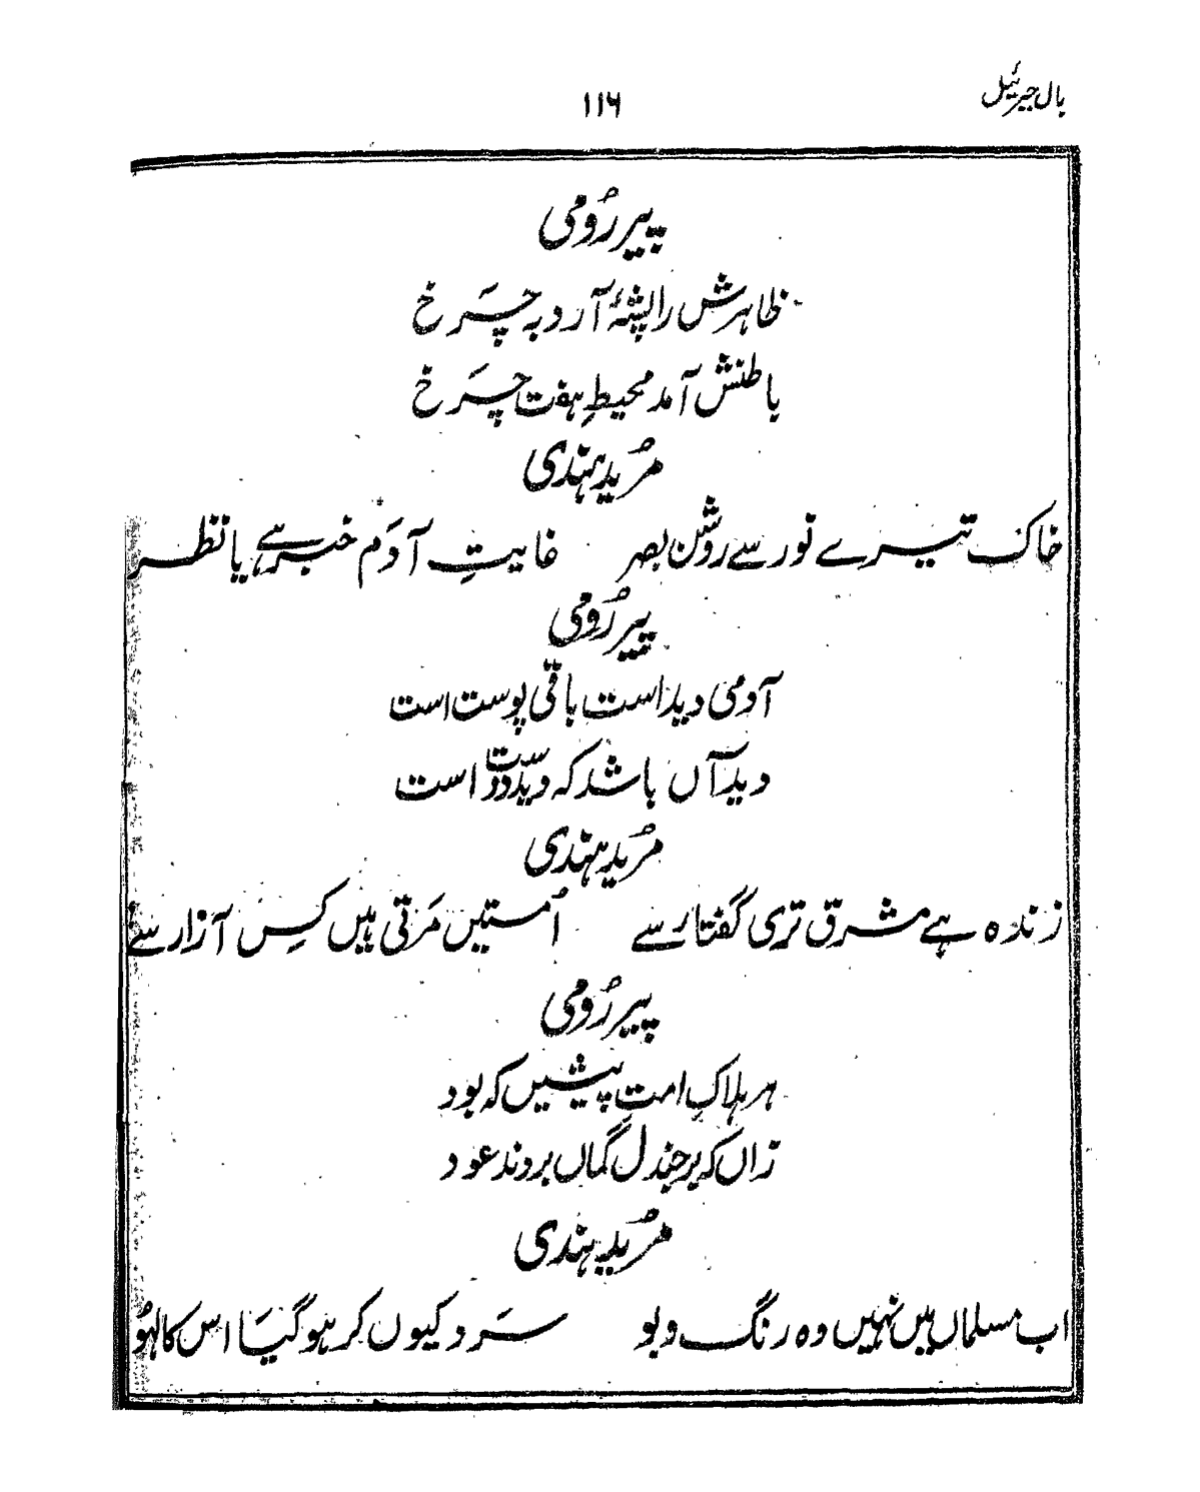 بال جبرئیل
۱۱۶
پیر رُومی
ظاہرش را پشۂ آرد بہ چَرخ
باطنش آمد محیطِ ہفت چَرخ
مرُیدِ ہندی
خاک تیرے نور سے روشن بصر غایتِ آدَم خبر ہے یا نظر
پیر رُومی
آدمی دید است باقی پوست است
دید آں باشد کہ دید دوست است
مرُیدِ ہندی
زندہ ہے مشرق تری گفتار سے اُمتیں مَرتی ہیں کِس آزار سے
پیر رُومی
ہر ہلاکِ امتِ پیشیں کہ بود
زاں کہ بر جندل گماں بردند عود
مرُیدِ ہندی
اب مسلماں میں نہیں وہ رنگ و بو سَرد کیوں کر ہو گیَا اس کا لہوُ